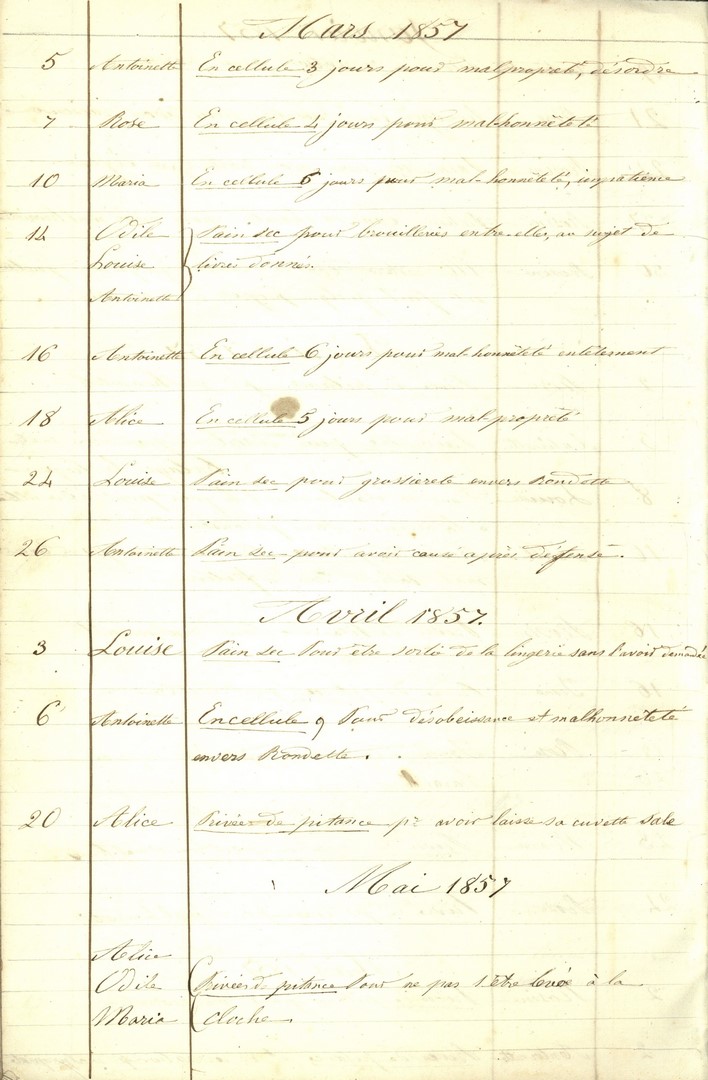 Mars 1857
5 Antoinette En cellule 3 jours pour malpropreté, désordre
7 Rose En cellule 4 jours pour mal-honnêteté
10 Maria En cellule 6 jours pour mal-honnêteté, impatience
14 Odile Pain sec pour brouilleries entre-elles, au sujet de
Louise livres donnés.
Antoinette
16 Antoinette En cellule 6 jours pour mal-honnêteté entêtement
18 Alice En cellule 5 jours pour mal-propreté
24 Louise Pain sec pour grossiereté envers Rondette
26 Antoinette Pain sec pour avoir causé après défense.
Avril 1857.
3 Louise Pain sec Pour être sortie de la lingerie sans l'avoir demandée
6 Antoinette En cellule 9 Pour désobeissance et malhonnêteté
envers Rondette.
20 Alice Privée de pitance pr avoir laisse sa cuvette sale
Mai 1857
Alice
Odile Privées de pitance Pour ne pas s'être levée à la
Maria cloche.